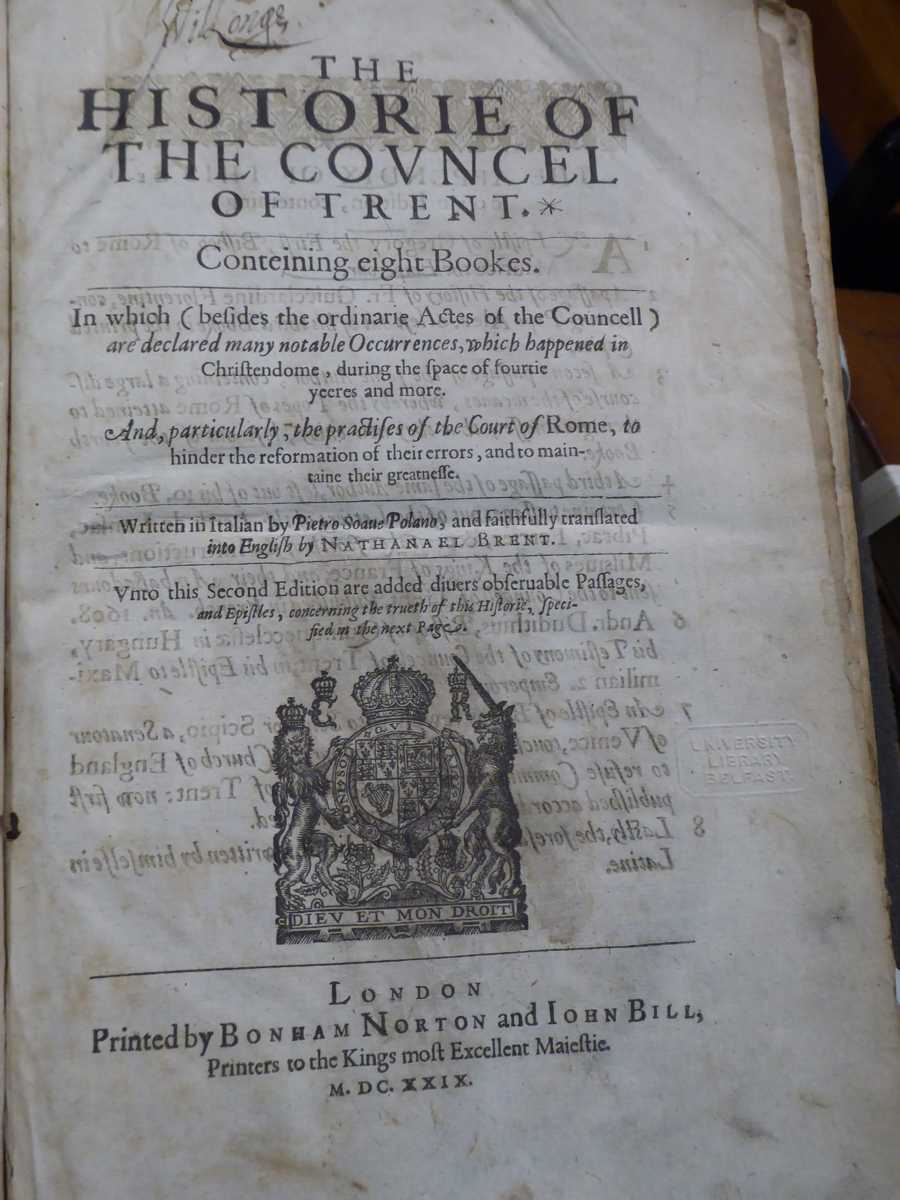 THE
HISTORIE OF
THE COVNCEL
OF TRENT.
Conteining eight Bookes.
In which (beſides the ordinarie Actes of the Councell)
are declared many notable Occurrences, which happened in
Chriſtendome, during the ſpace of fourtie
yeeres and more.
And, particularly, the practiſes of the Court of Rome, to
hinder the reformation of their errors, and to main-
taine their greatneſſe.
Written in Italian by Pietro Soaue Polano, and faithfully tranſlated
into Engliſh by NATHANAEL BRENT.
Vnto this Second Edition are added diuers obſeruable Paſſages,
and Epiſtles, concerning the trueth of this Hiſtorie, ſpeci-
fied in the next Page.
C R
HONI SOIT QVI
DIEV ET MON DROIT
UNIVERSITY
LIBRARY
BELFAST.
LONDON
Printed by BONHAM NORTON and IOHN BILL,
Printers to the Kings moſt Excellent Maieſtie.
M. DC. XXIX.